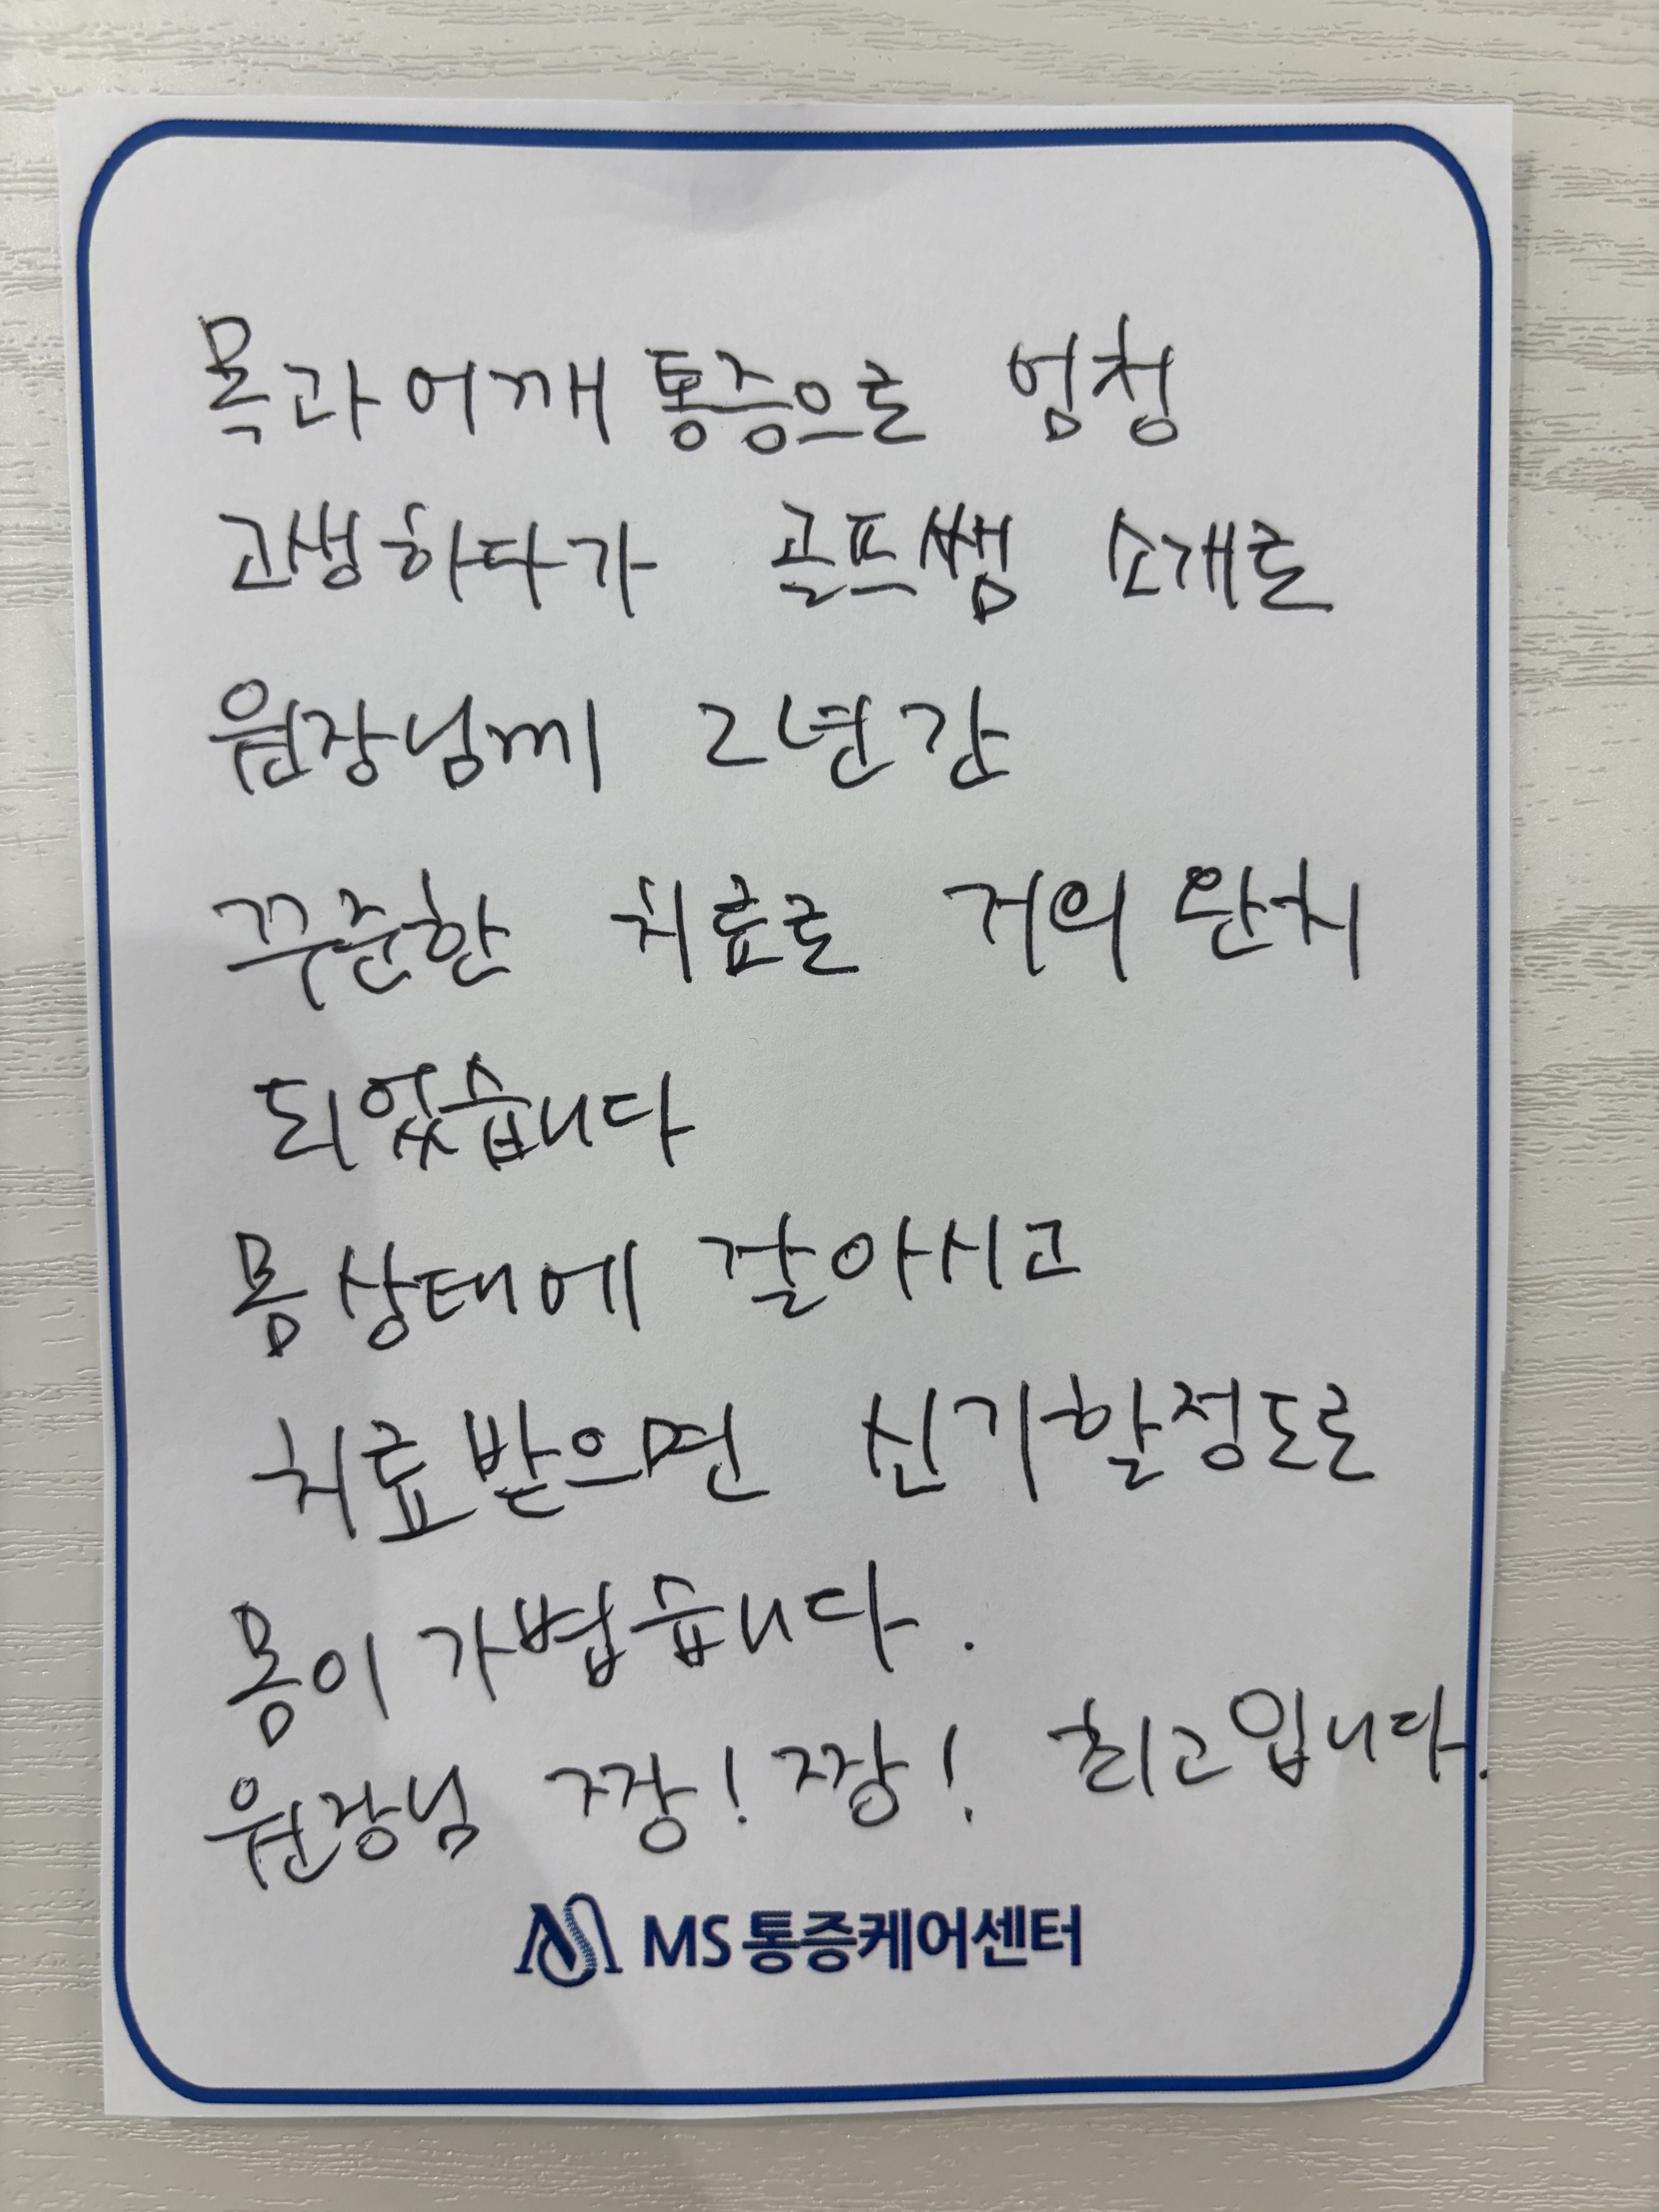 목과 어깨 통증으로 엄청
고생하다가 골프쌤 소개로
원장님께 2년간
꾸준한 치료로 거의 완치
되었습니다
몸 상태에 잘아시고
치료 받으면 신기할정도로
몸이 가볍습니다.
원장님 짱! 짱! 최고입니다.
MS 통증케어센터